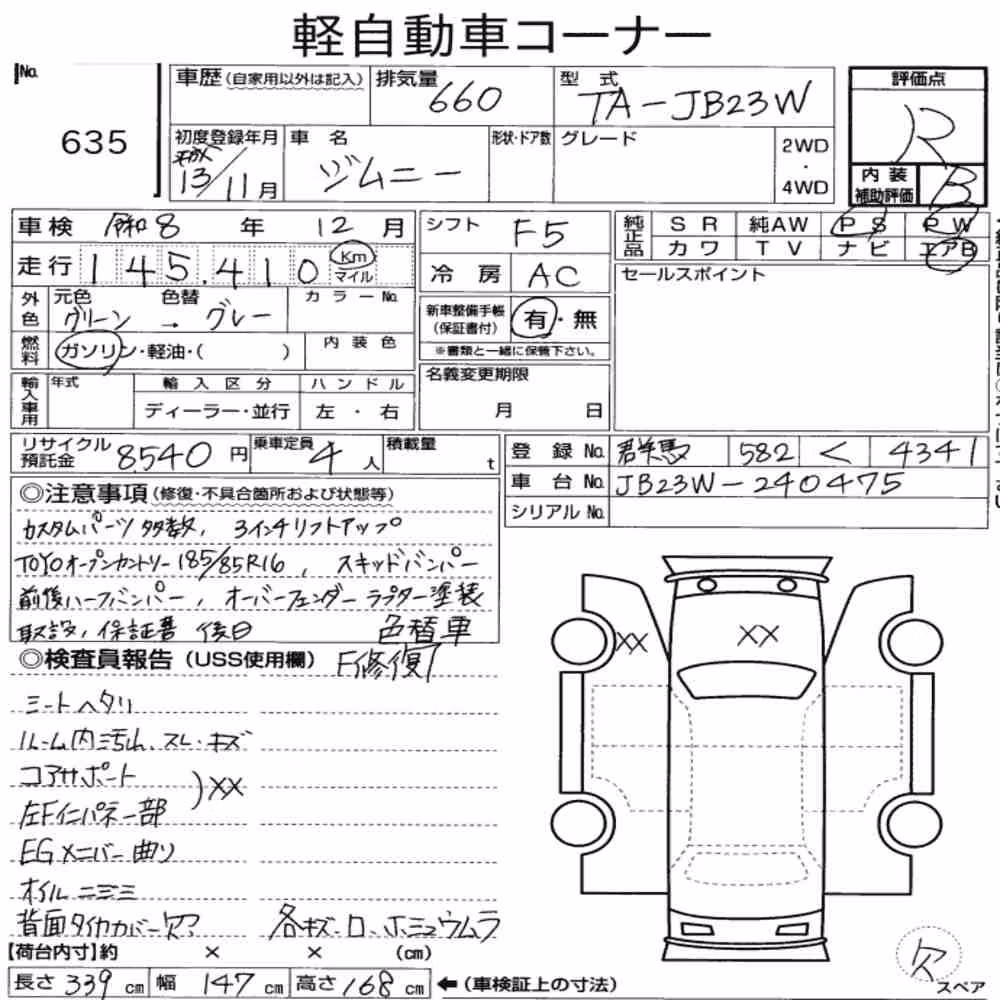 軽自動車コーナー
No. 635
車歴(自家用以外は記入) 排気量 660 型式 TA-JB23W 評価点 R
初度登録年月 平成 13/11月 車名 ジムニー 形状・ドア数 グレード 2WD・4WD 内装補助評価 B
車検 令和8年12月 シフト F5 純正品 SR 純AW PS PW
走行 145,410 Km マイル 冷房 AC カワ TV ナビ エアB
外色 元色 グリーン → 色替 グレー カラーNo. 新車整備手帳(保証書付) 有・無 セールスポイント
燃料 ガソリン・軽油・( ) 内装色 ※書類と一緒に保管下さい。
輸入車用 年式 輸入区分 ディーラー・並行 ハンドル 左・右 名義変更期限 月 日
リサイクル預託金 8540円 乗車定員 4人 積載量 t 登録No. 群馬 582 く 4341
車台No. JB23W-240475
シリアルNo.
◎注意事項(修復・不具合箇所および状態等)
カスタムパーツ多数, 3インチリフトアップ
TOYOオープンカントリー185/85R16, スキッドバンパー
前後ハーフバンパー, オーバーフェンダー ラプター塗装
取説, 保証書 後日 色替車
◎検査員報告(USS使用欄) F修復
シートヘタリ
ルーム内汚れ.スレ.キズ
コアサポート
左Fインパネ一部 )XX
EGメンバー曲り
オイルニジミ
背面タイヤカバー欠 各キズ.
XX XX
欠 スペア
【荷台内寸】約 × × (cm)
長さ 339cm 幅 147cm 高さ 168cm ←(車検証上の寸法)